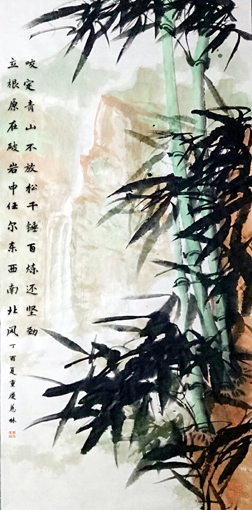 咬定青山不放松千锤百炼还坚劲
立根原在破岩中任尔东西南北风丁酉夏重慶